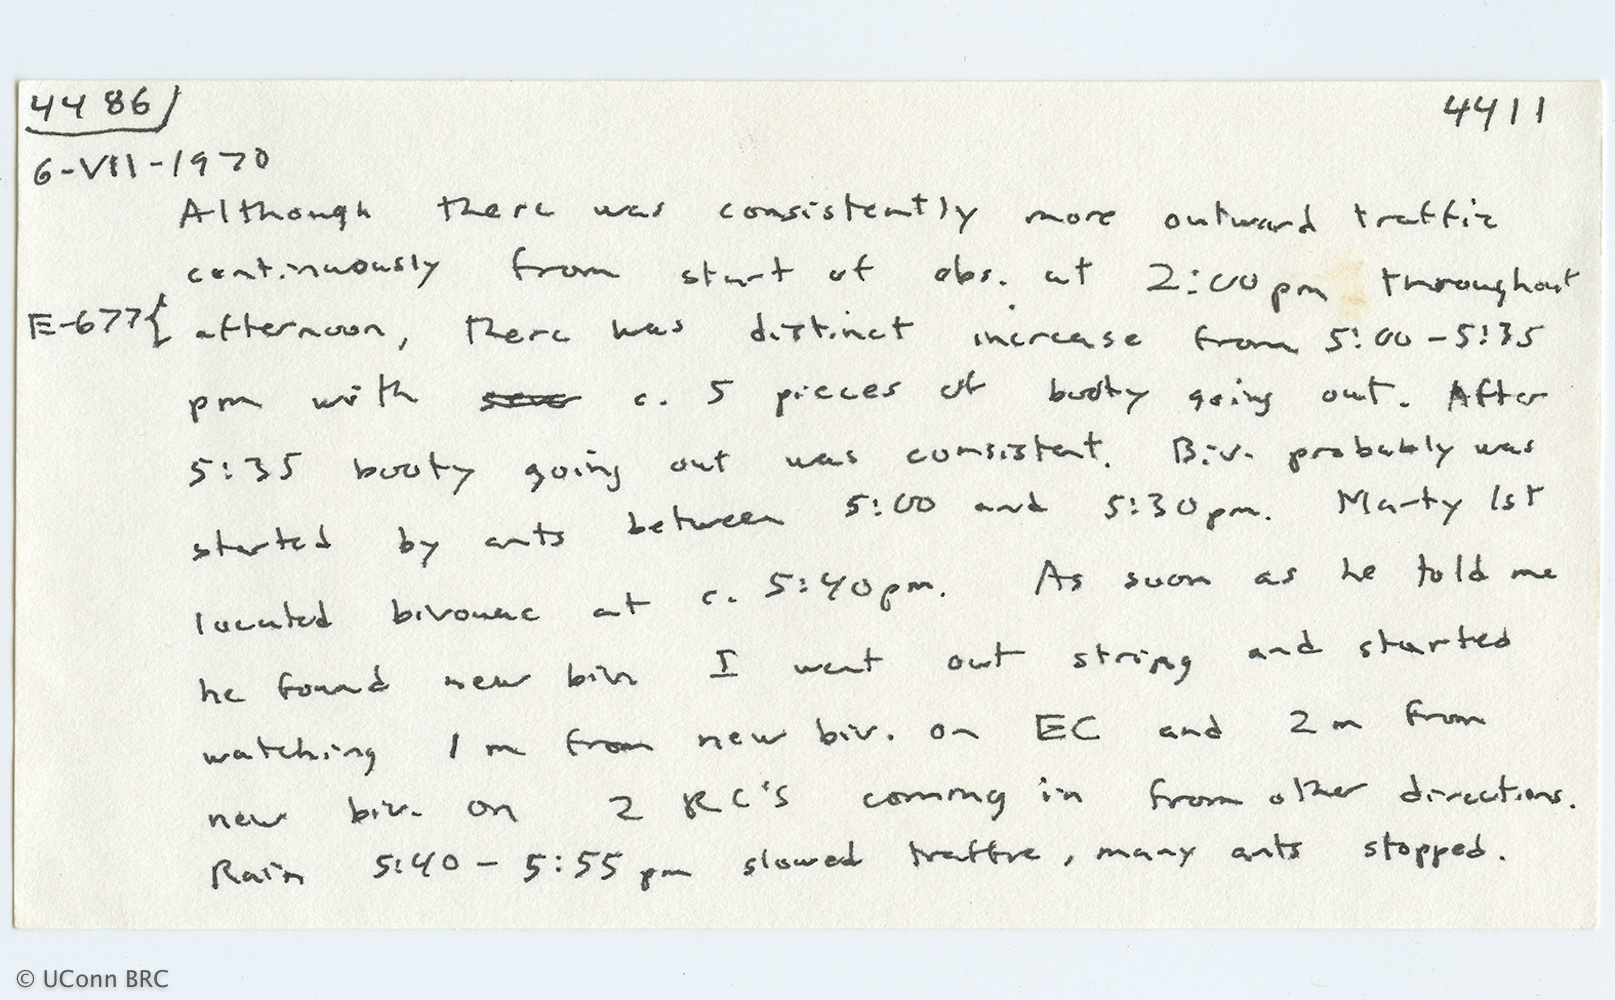 4486 4411
6-VII-1970
Although there was consistently more outward traffic
continuously from start of obs. at 2:00pm throughout
E-677{ afternoon, there was distinct increase from 5:00-5:35
pm with c. 5 pieces of booty going out. After
5:35 booty going out was consistent. Biv. probably was
started by ants between 5:00 and 5:30pm. Marty 1st
located bivouac at c. 5:40pm. As soon as he told me
he found new biv. I went out string and started
watching 1 m from new biv. on EC and 2 m from
new biv. on 2 RC's coming in from other directions.
Rain 5:40 - 5:55 pm slowed traffic, many ants stopped.
© UConn BRC